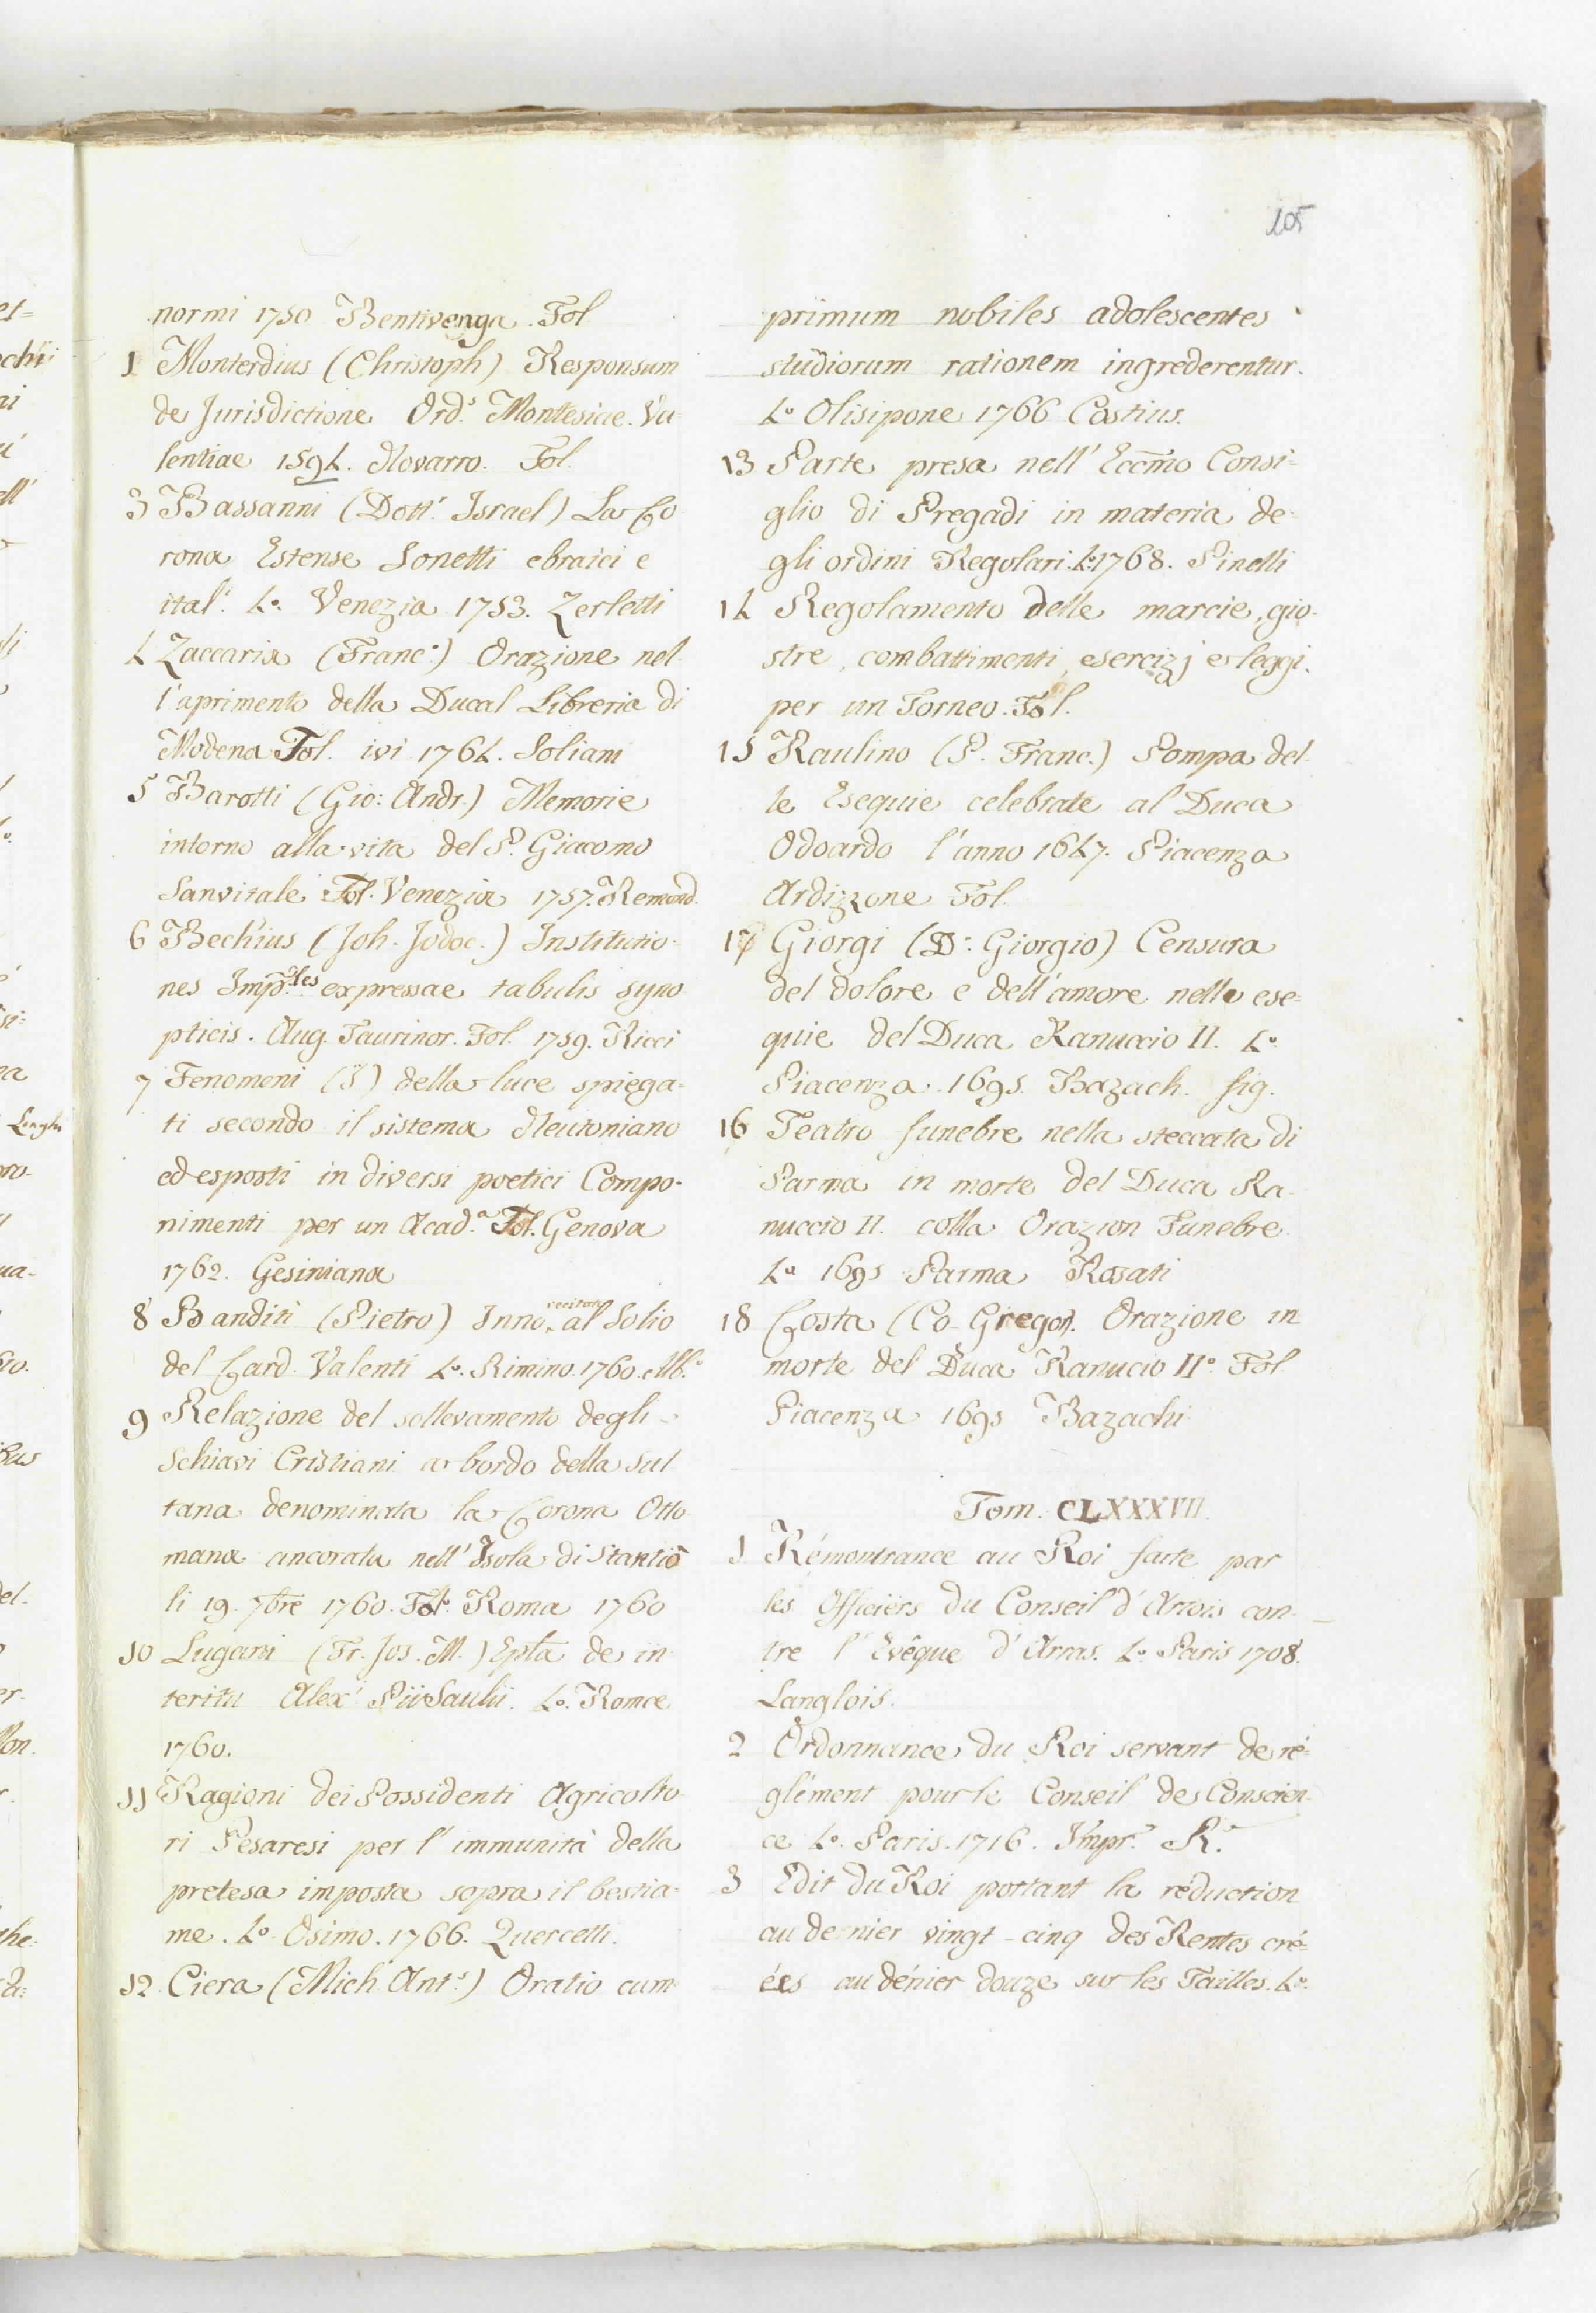 105
normi 1750 Bentivenga. Fol.
1 Monterdius (Christoph) Responsum
de Jurisdictione Ord.s Montesiae. Va
lentiae 1594. Novarro. Fol.
3 Bassanni (Dott.r Israel) La Co
rona Estense Sonetti ebraici e
ital.i 4.o Venezia 1753. Zerletti
4 Zaccaria (Franc.o) Orazione nel
l'aprimento della Ducal Libreria di
Modena Fol. ivi 1764. Soliani
5 Barotti (Gio: Andr.) Memorie
intorno alla vita del P. Giacomo
Sanvitale Fol. Venezia 1757. Remond.
6 Bechius (Joh. Jodoc.) Institutio-
nes Imp.les expressae tabulis syno
pticis. Aug. Taurinor. Fol. 1759. Ricci
7 Fenomeni (I) della luce spiega=
ti secondo il sistema Neutoniano
ed esposti in diversi poetici Compo-
nimenti per un Acad.a Fol. Genova
1762. Gesiniana
8 Banditi (Pietro) Inno recitato al Solio
del Card. Valenti 4.o Rimino. 1760. Alb.
9 Relazione del sollevamento degli
Schiavi Cristiani a bordo della Sul
tana denominata la Corona Otto
mana ancorata nell' Isola di Stantiò
li 19. 7bre 1760. Fol. Roma 1760
10 Lugani (Fr. Jos. M.) Epla de in
teritu Alex.i Pii Saulii. 4.o Romae
1760.
11 Ragioni dei Possidenti Agricolto
ri Pesaresi per l' immunità della
pretesa imposta sopra il bestia-
me. 4.o Osimo. 1766. Quercetti.
12 Ciera (Mich. Ant.s) Oratio cum
primum nobiles adolescentes
studiorum rationem ingrederentur.
4.o Olisipone 1766 Costius.
13 Parte presa nell' Eccmo Consi=
glio di Pregadi in materia de-
gli ordini Regolari. 4.o 1768. Pinelli
14 Regolamento delle marcie, gio-
stre, combattimenti, esercizj e leggi
per un Torneo. Fol.
15 Raulino (P. Franc.) Pompa del
le Esequie celebrate al Duca
Odoardo l'anno 1647. Piacenza
Ardizzone Fol.
17 Giorgi (D.r Giorgio) Censura
del dolore e dell'amore nelle ese=
quie del Duca Ranuccio II. 4.o
Piacenza. 1695. Bazach. fig.
16 Teatro funebre nella steccata di
Parma in morte del Duca Ra-
nuccio II. colla Orazion Funebre
4.o 1695 Parma Rosati
18 Costa (Co. Gregor). Orazione in
morte del Duca Ranucio II.o Fol.
Piacenza 1695 Bazachi
Tom. CLXXXVII.
1 Rémontrance au Roi faite par
les Officiers du Conseil d'Artois con-
tre l'Evêque d'Arras. 4.o Paris 1708.
Langlois.
2 Ordonnance du Roi servant de ré=
glément pour le Conseil de Conscien-
ce 4.o Paris. 1716. Impr.e R.
3 Edit du Roi portant la réduction
au dernier vingt-cinq des Rentes cré=
ées au dénier douze sur les Tailles. 4.o